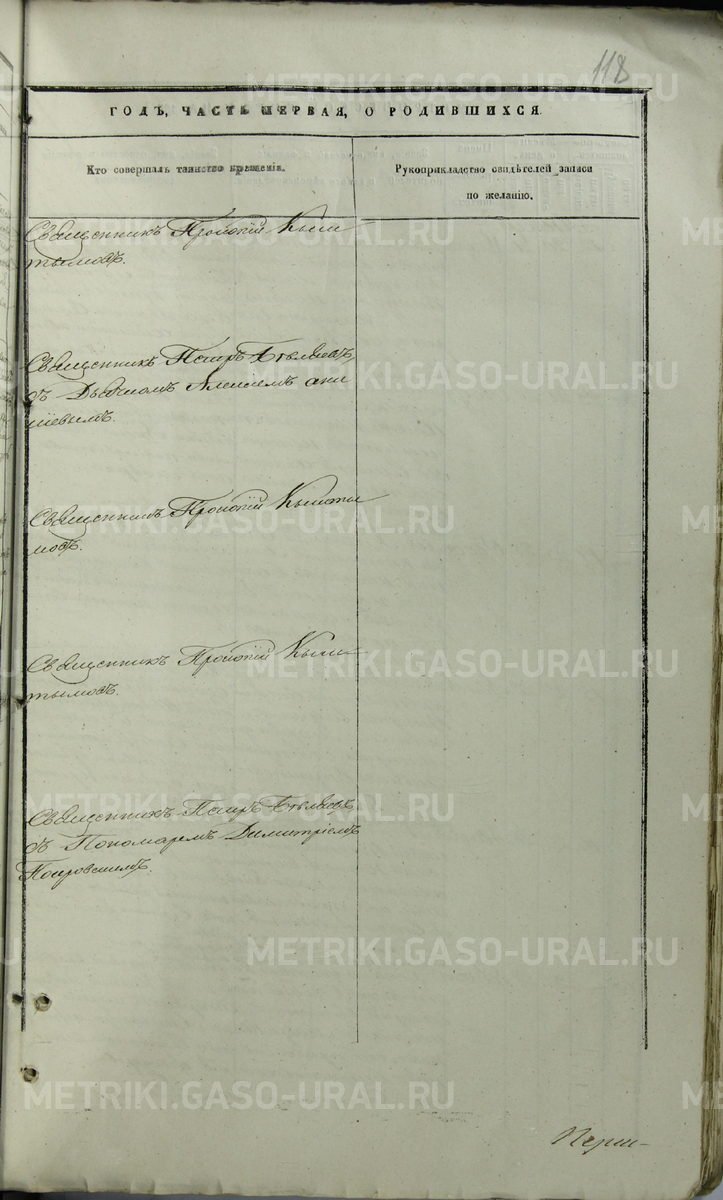 118
ГОДЪ, ЧАСТЬ ПЕРВАЯ, О РОДИВШИХСЯ.
Кто совершалъ таинство крещенія.
Рукоприкладство свидѣтелей записи
по желанію.
Священникъ Прокопій Кыш
тымовъ.
Священникъ Петръ Бѣляевъ
съ Дьячкомъ Алексіемъ
Священникъ Прокопій Кышты
мовъ.
Священникъ Прокопій Кыш
тымовъ.
Священникъ Петръ Бѣляевъ
съ Пономаремъ Димитріемъ
Покровскимъ.
METRIKI.GASO-URAL.RU